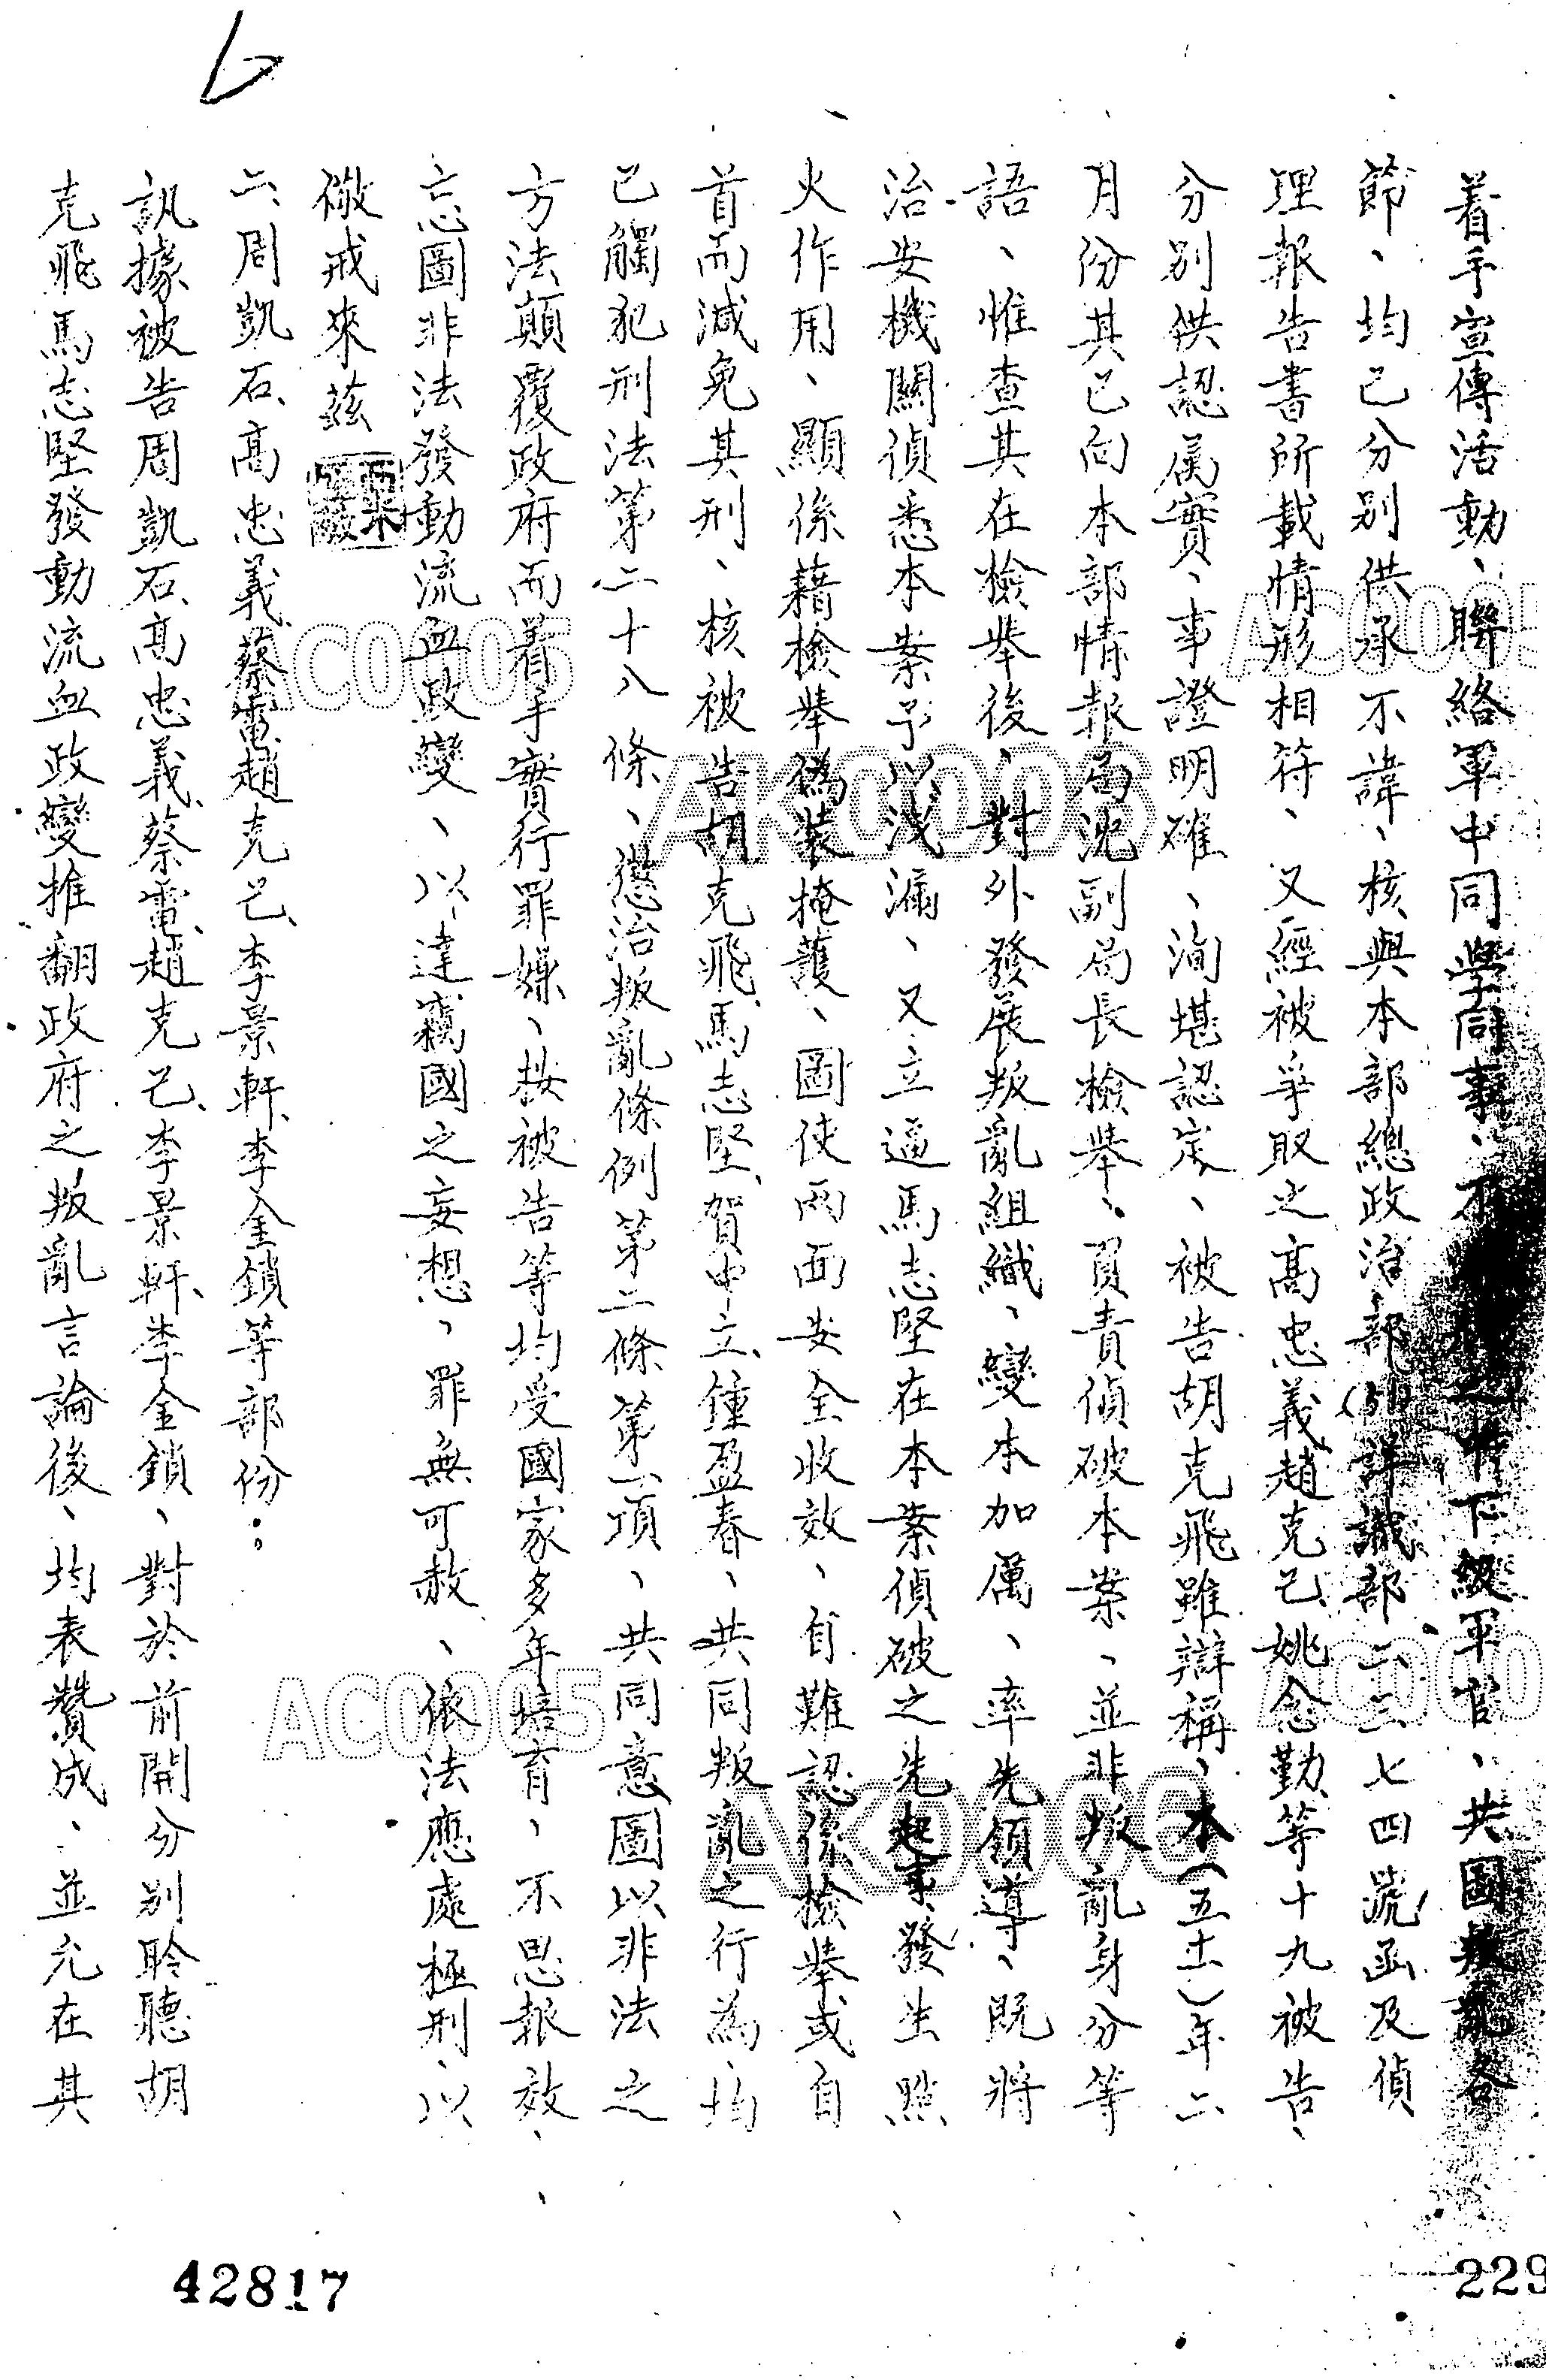 着手宣傳活動、聯絡軍中同學同事、下級軍官、共圖叛亂各
節、均已分別供承不諱、核與本部總政治部(51)詳誠部二三七四號函及偵
理報告書所載情形相符、又經被爭取之高忠義趙克己、姚念勤等十九被告、
分別供認屬實、事證明確、洵堪認定、被告胡克飛雖辯稱、本(五十一)年二
月份其已向本部情報局沈副局長檢舉、負責偵破本案、並非叛亂身分等
語、惟查其在檢舉後、對外發展叛亂組織、變本加厲、率先領導、既將
治安機關偵悉本案予以洩漏、又立逼馬志堅在本案偵破之先起事發生照
火作用、顯係藉檢舉偽裝掩護、圖使兩面安全收效、自難認係檢舉或自
首而減免其刑、核被告胡克飛、馬志堅、賀中立、鍾盈春、共同叛亂之行為均
已觸犯刑法第二十八條、懲治叛亂條例第二條第一項、共同意圖以非法之
方法顛覆政府而着手實行罪嫌、按被告等均受國家多年培育、不思報效、
忘圖非法發動流血政變、以達竊國之妄想、罪無可赦、依法應處極刑、以
儆戒來茲
二、周凱石、高忠義、蔡雷、趙克己、李景軒、李金鎖等部份:。
訊據被告周凱石、高忠義、蔡雷、趙克己、李景軒、李金鎖、對於前開分別聆聽胡
克飛馬志堅發動流血政變推翻政府之叛亂言論後、均表贊成、並允在其
42817
229
AC0005
AC0005
AK0006
AC0005
AC000
AK0006